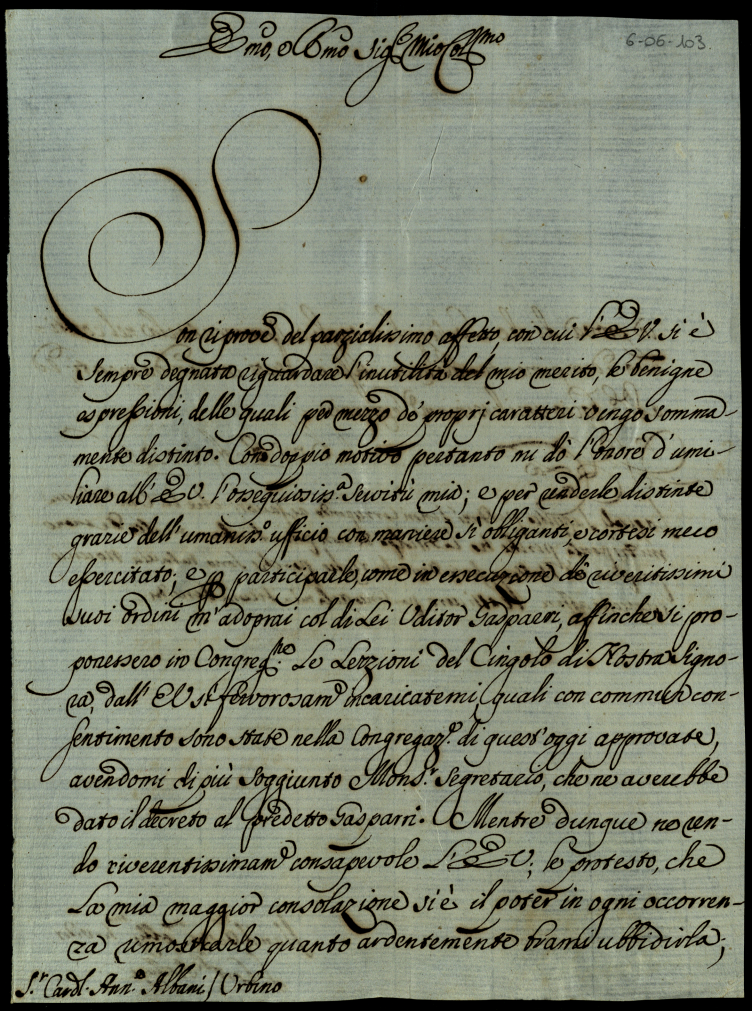 Emo, e Rmo Sigr Mio Colmo
6-06-103.
Son riprove del parzialissimo affetto, con cui l'E.V. si è
sempre degnata riguardare l'inutilità del mio merito, le benigne
espressioni, delle quali per mezzo de' proprj caratteri vengo somma-
mente distinto. Con doppio motivo pertanto mi dò l'onore d'umi-
liare all'E.V. l'ossequiosissa servitù mia; e per renderle distinte
grazie dell'umaniss° ufficio con maniere sì obliganti, e cortesi meco
essercitato; e p participarle, come in essecuzione de riveritissimi
suoi ordini m'adoprai col di Lei Uditor Gasparri, affinche si pro-
ponessero in Congregne Le Lezzioni del Cingolo di Nostra Signo-
ra, dall'EV sì fervorosamte incaricatemi, quali con commun con-
sentimento sono state nella Congregaze di quest'oggi approvate,
avendomi di più soggiunto Monsr Segretario, che ne averebbe
dato il decreto al predetto Gasparri. Mentre dunque ne ren-
do riverentissimamte consapevole l'E.V., le protesto, che
La mia maggior consolazione si è il poter in ogni occorren-
za dimostrarle quanto ardentemente brami ubbidirla;
S.r Cardl. Ann.e Albani / Urbino